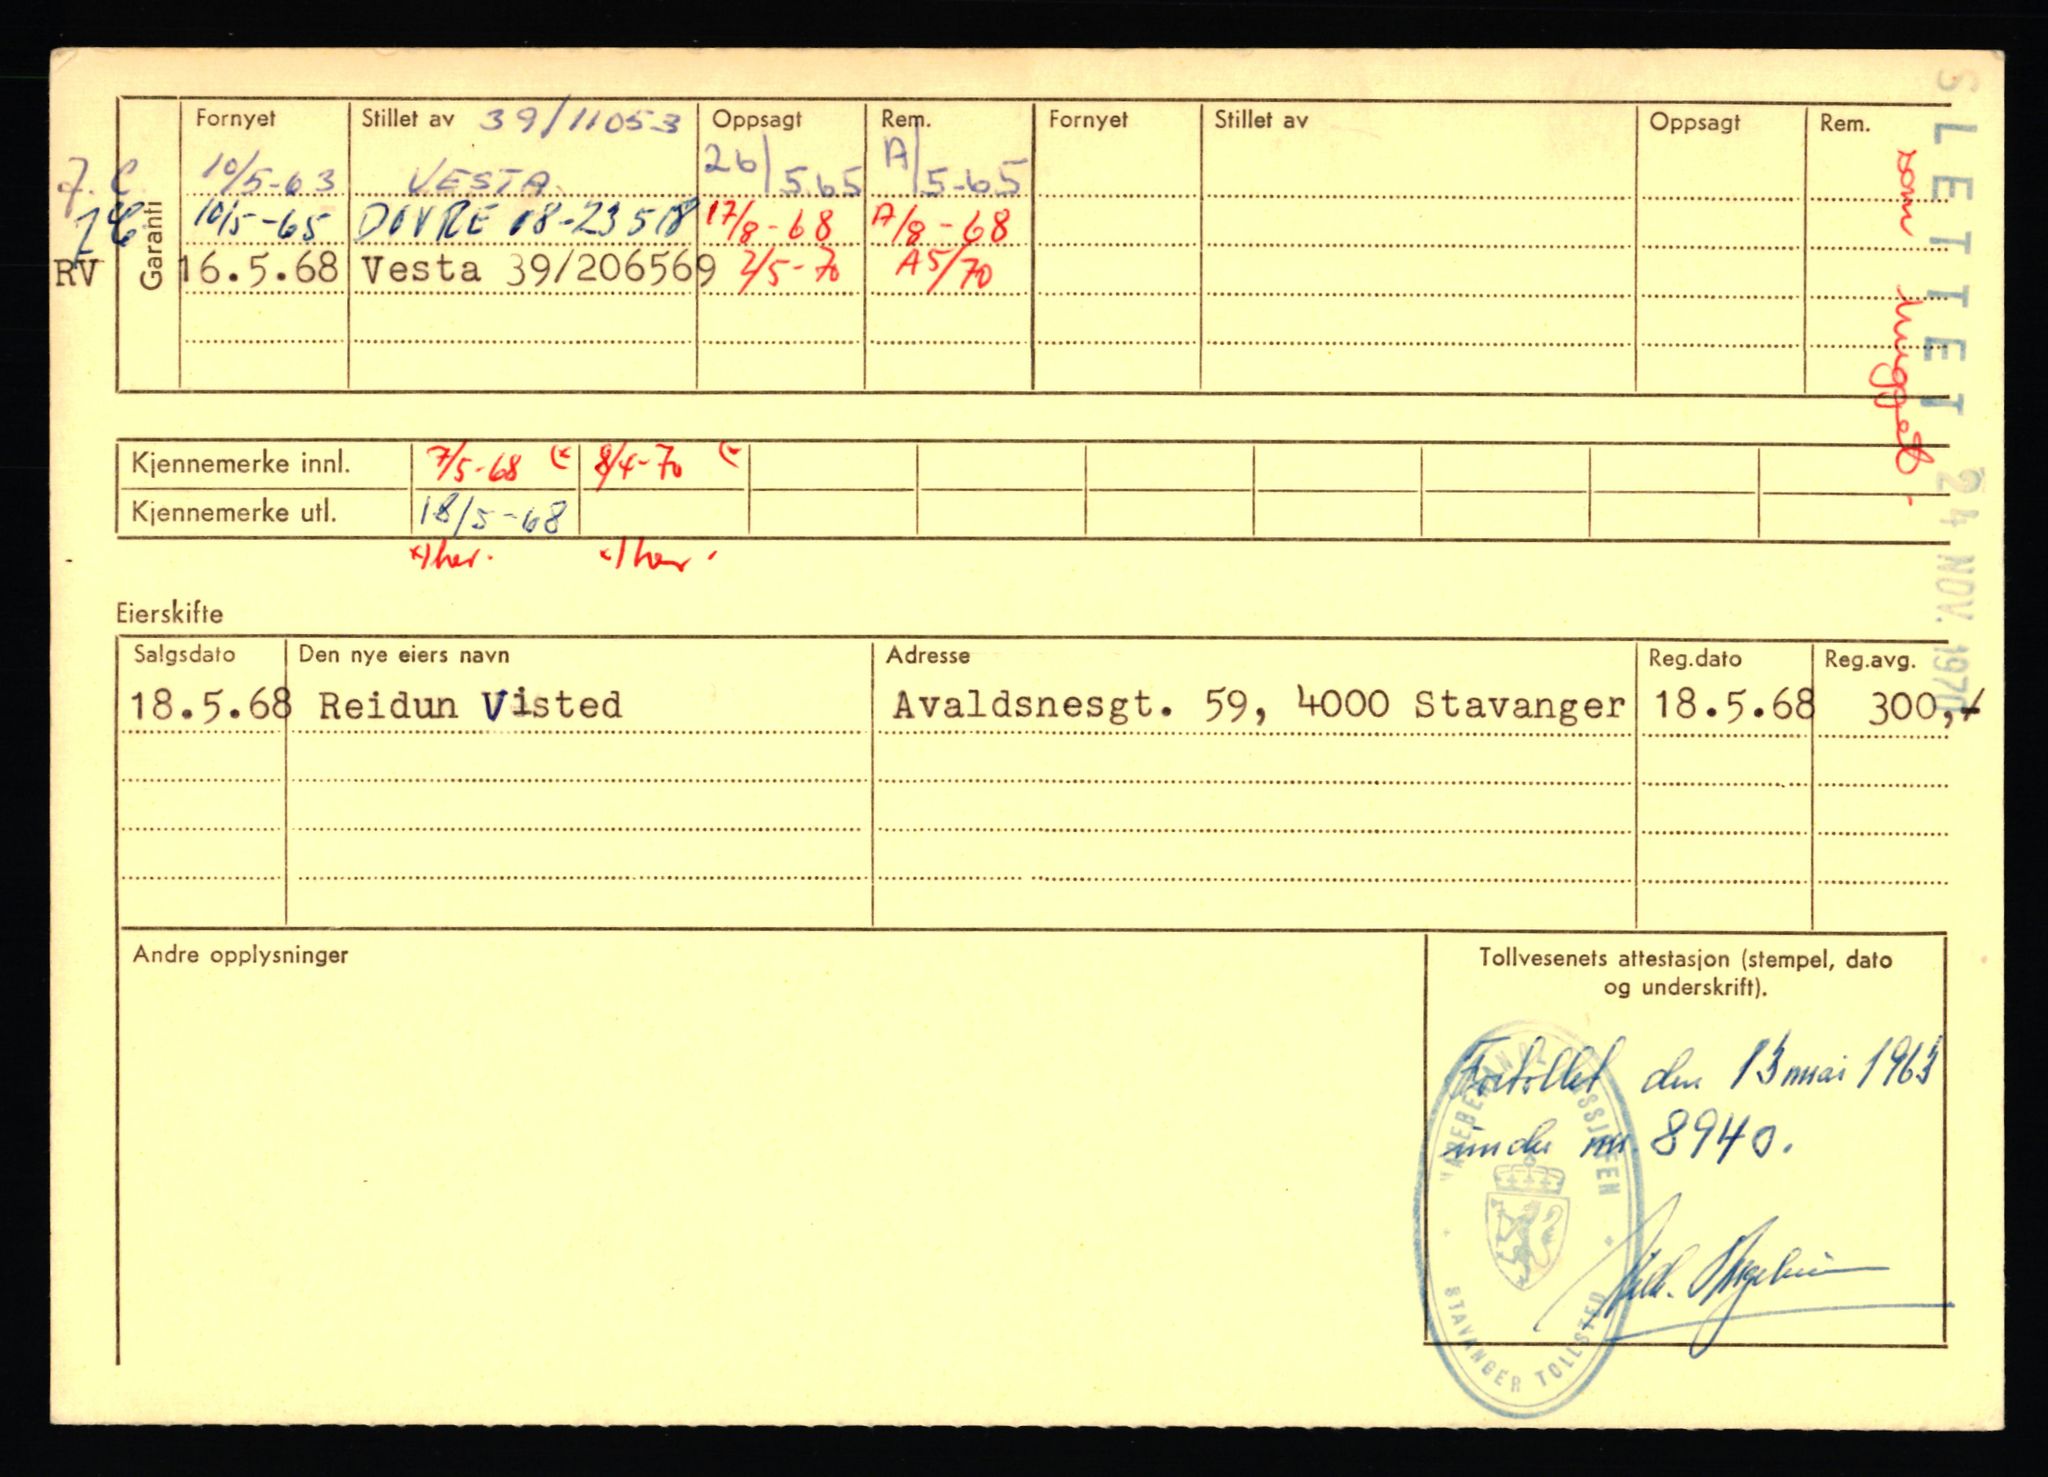 Garanti
Fornyet Stillet av 39/11053 Oppsagt Rem. Fornyet Stillet av Oppsagt Rem.
7. C 10/5-63 VESTA 26/5.65 A/5-65
10/5-65 DOVRE 08-23518 17/8-68 A/8-68
RV 16.5.68 Vesta 39/206569 2/5-70 A5/70
SLETTET 24 NOV. 1970
som hugget -
Kjennemerke innl. 7/5-68 (* 8/4-70 (*
Kjennemerke utl. 18/5-68
*) her. *) her.
Eierskifte
Salgsdato Den nye eiers navn Adresse Reg.dato Reg.avg.
18.5.68 Reidun Visted Avaldsnesgt. 59, 4000 Stavanger 18.5.68 300,-
Andre opplysninger
Tollvesenets attestasjon (stempel, dato
og underskrift).
Fortollet den 13 mai 1963
under nr. 8940.
VAREBEHANDLINGSSJEFEN
STAVANGER TOLLSTED